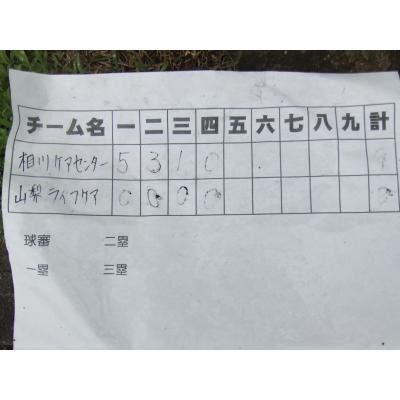 チーム名 一 二 三 四 五 六 七 八 九 計
相川ケアセンター 5 3 1 0 9
山梨ライフケア 0 0 0 0 0
球審 二塁
一塁 三塁